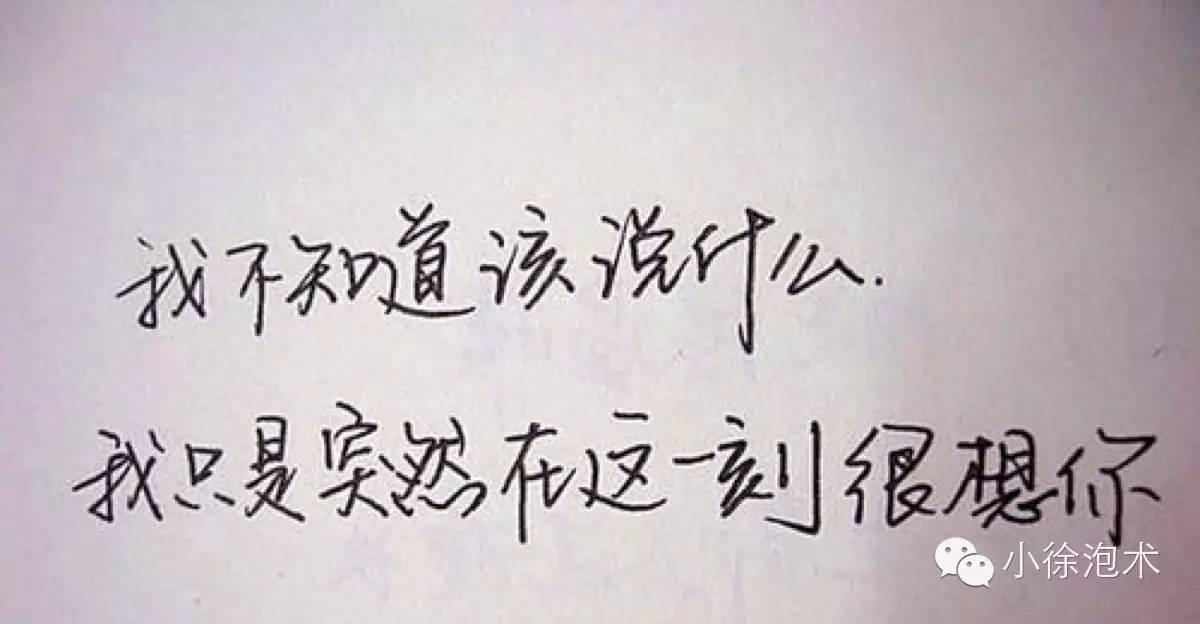 我不知道该说什么.
我只是突然在这一刻很想你
小徐泡术